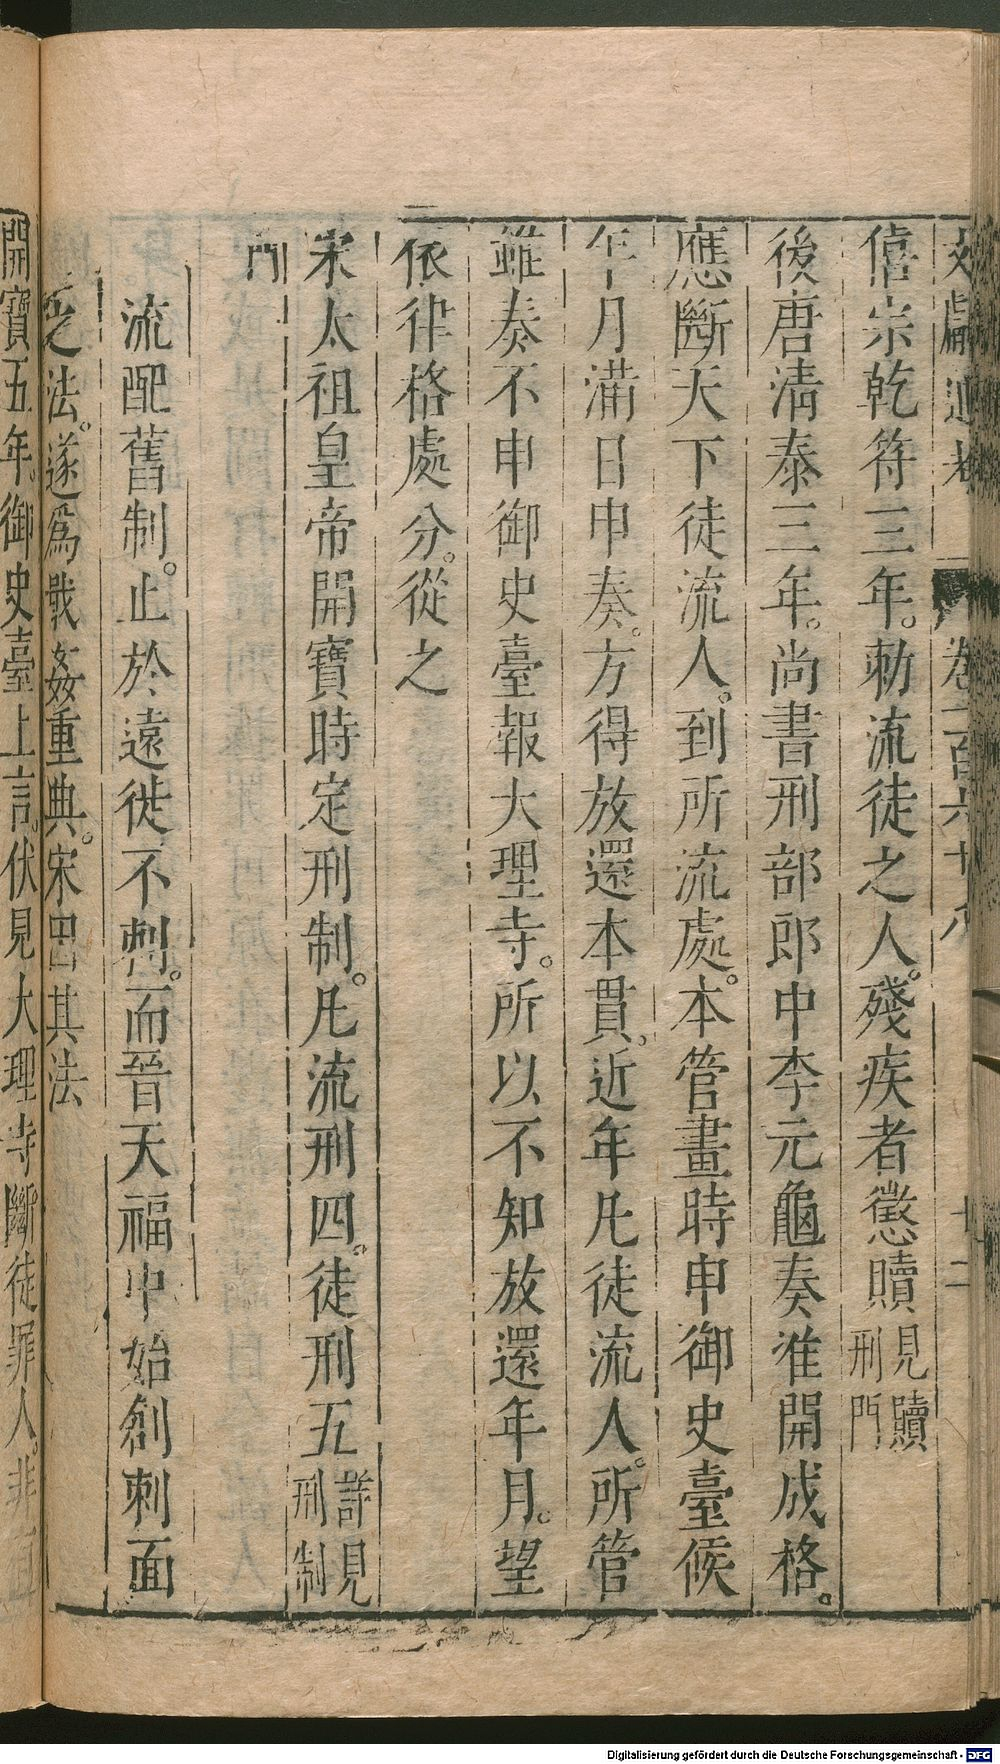 文獻通考 卷一百六十八 十二
僖宗乾符三年。勅流徒之人。殘疾者懲贖見贖刑門
後唐清泰三年。尚書刑部郎中李元龜奏准開成格。
應斷天下徒流人。到所流處。本管畫時申御史臺候
年月滿日申奏。方得放還本貫。近年凡徒流人。所管
雖奏不申御史臺報大理寺。所以不知放還年月。望
依律格處分。從之
宋太祖皇帝開寶時定刑制。凡流刑四。徒刑五詳見刑制
門
流配舊制。止於遠徙不刺。而晉天福中始創刺面
之法。遂爲戢姦重典。宋因其法
開寶五年。御史臺上言。伏見大理寺斷徒罪人。非
Digitalisierung gefördert durch die Deutsche Forschungsgemeinschaft - DFG